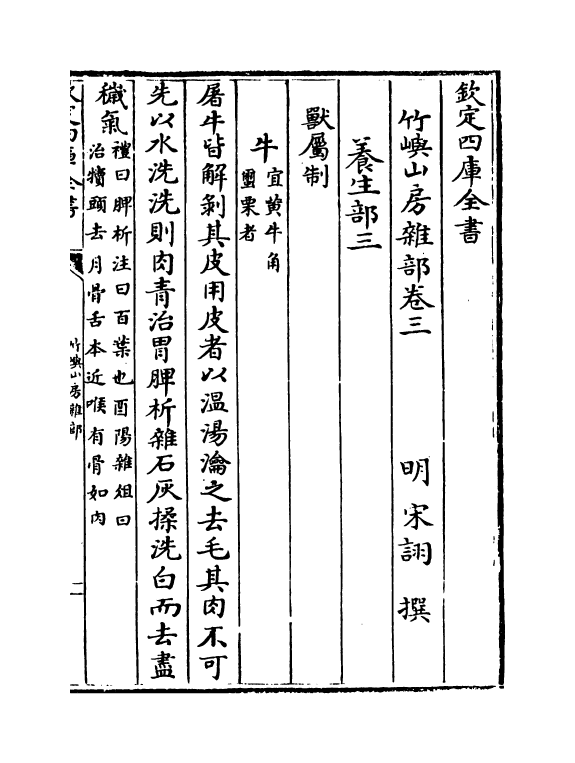 欽定四庫全書
竹嶼山房雜部卷三
明 宋詡 撰
養生部三
獸屬制
牛
宜黄牛角
䘆栗者
屠牛皆解剝其皮用皮者以温湯瀹之去毛其肉不可
先以水洗洗則肉青治胃脾析雜石灰揉洗白而去盡
穢氣
禮曰脾析注曰百葉也酉陽雜俎曰
治犢頭去月骨舌本近喉有骨如肉
竹嶼山房雜部
二